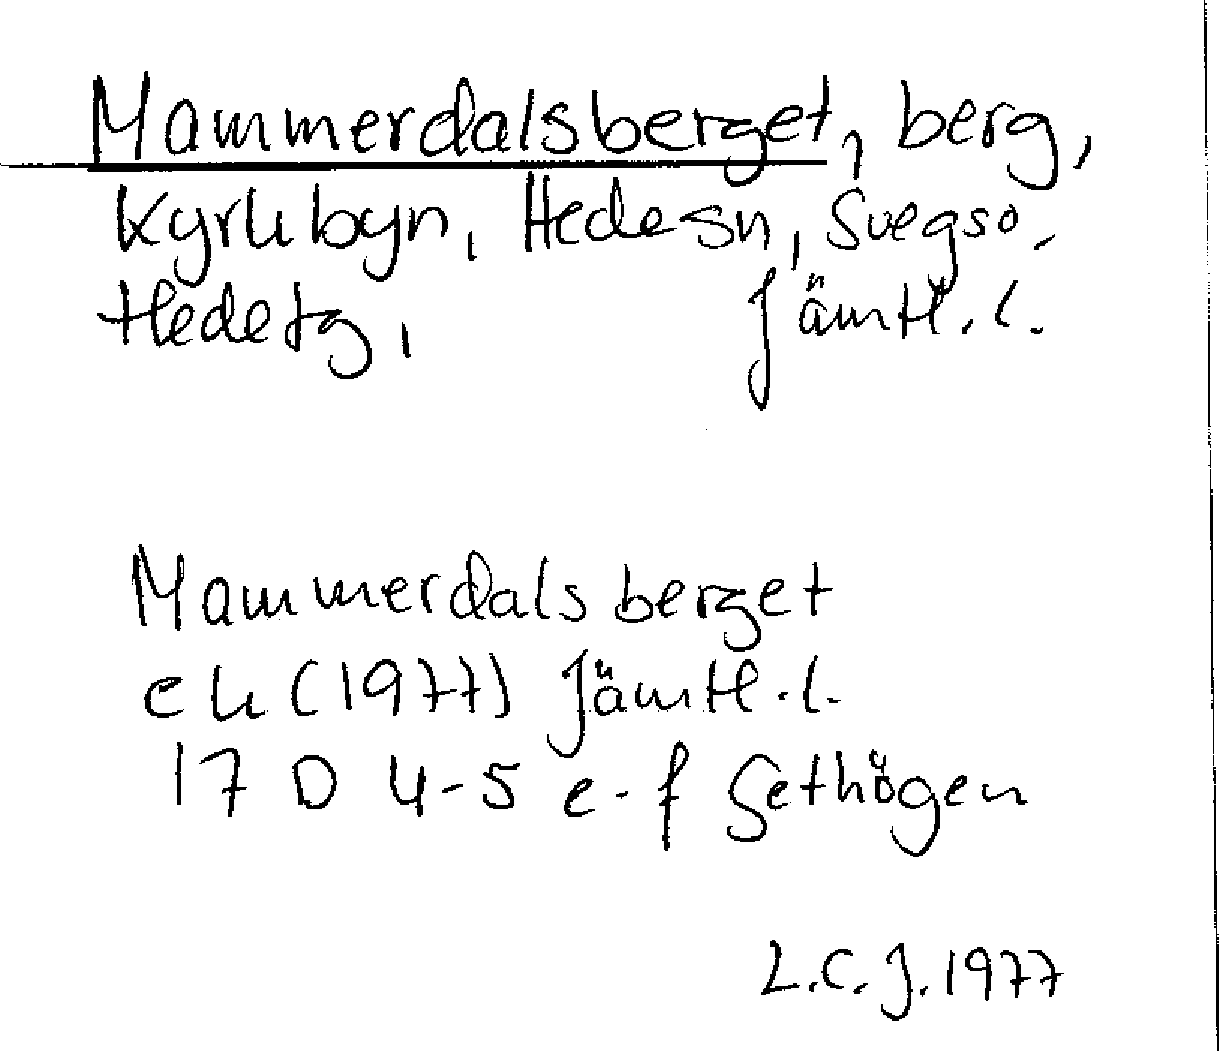 Mammerdalsberget, berg,
Kyrkbyn, Hedesn, Svegs o.
Hedetg, Jämtl. l.
Mammerdalsberget
ek (1977) Jämtl. l.
17 D 4-5 e-f Gethögen
L.C.J. 1977